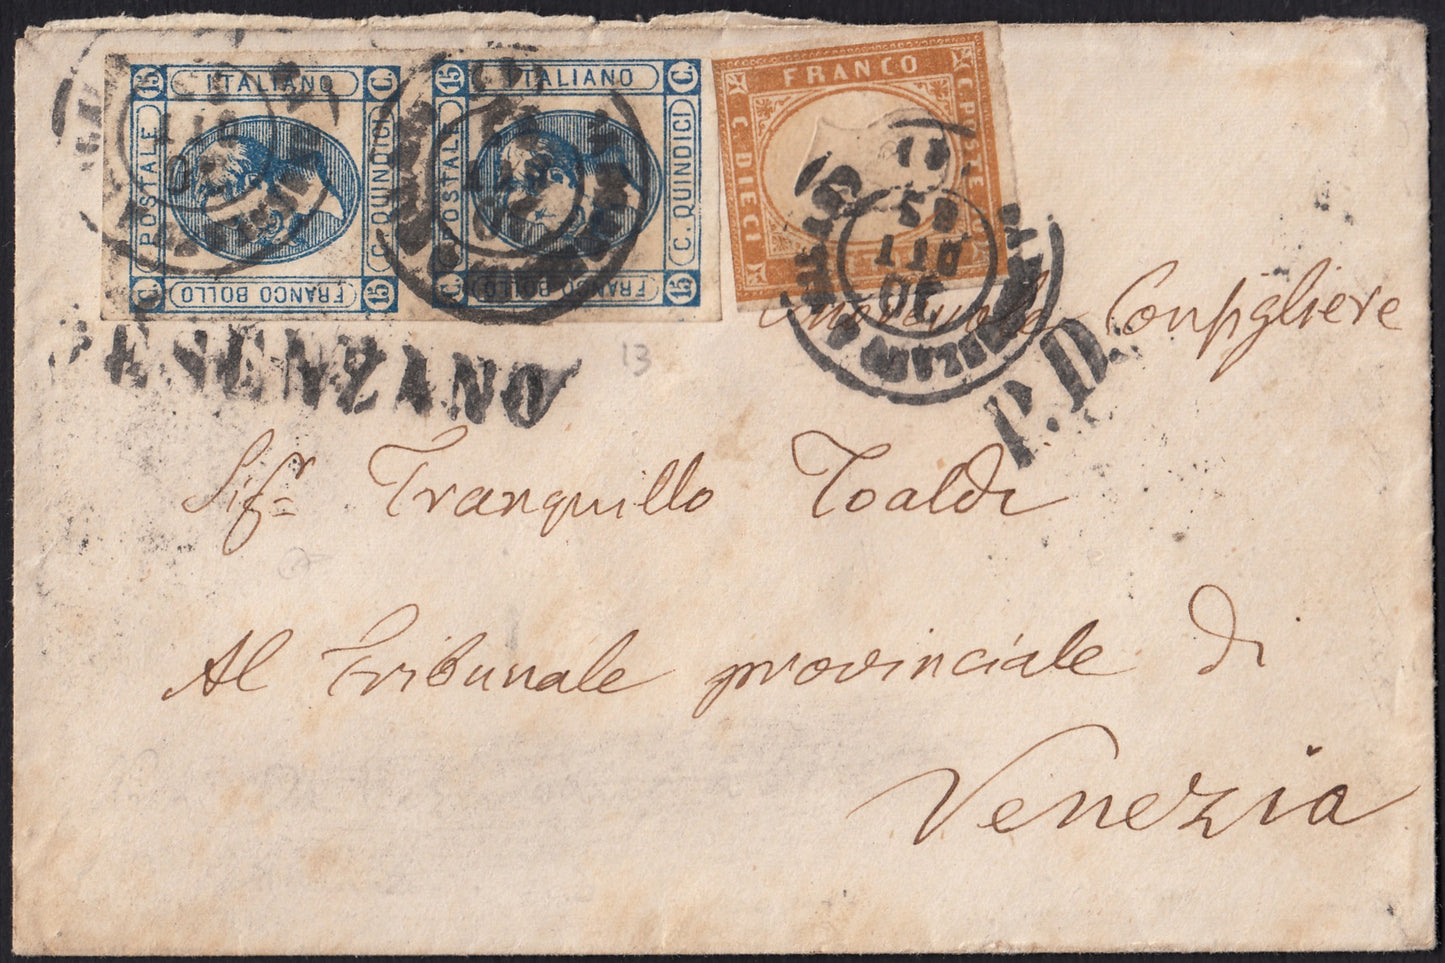 15 ITALIANO C.
POSTALE
C. QUINDICI
C. FRANCO BOLLO 15
15 ITALIANO C.
POSTALE
C. QUINDICI
C. FRANCO BOLLO 15
FRANCO
C. DIECI
C. POSTE
30
OTT
63
P.D.
DESENZANO
13
Onorevole Consigliere
Sig.r Tranquillo Toaldi
Al Tribunale provinciale di
Venezia